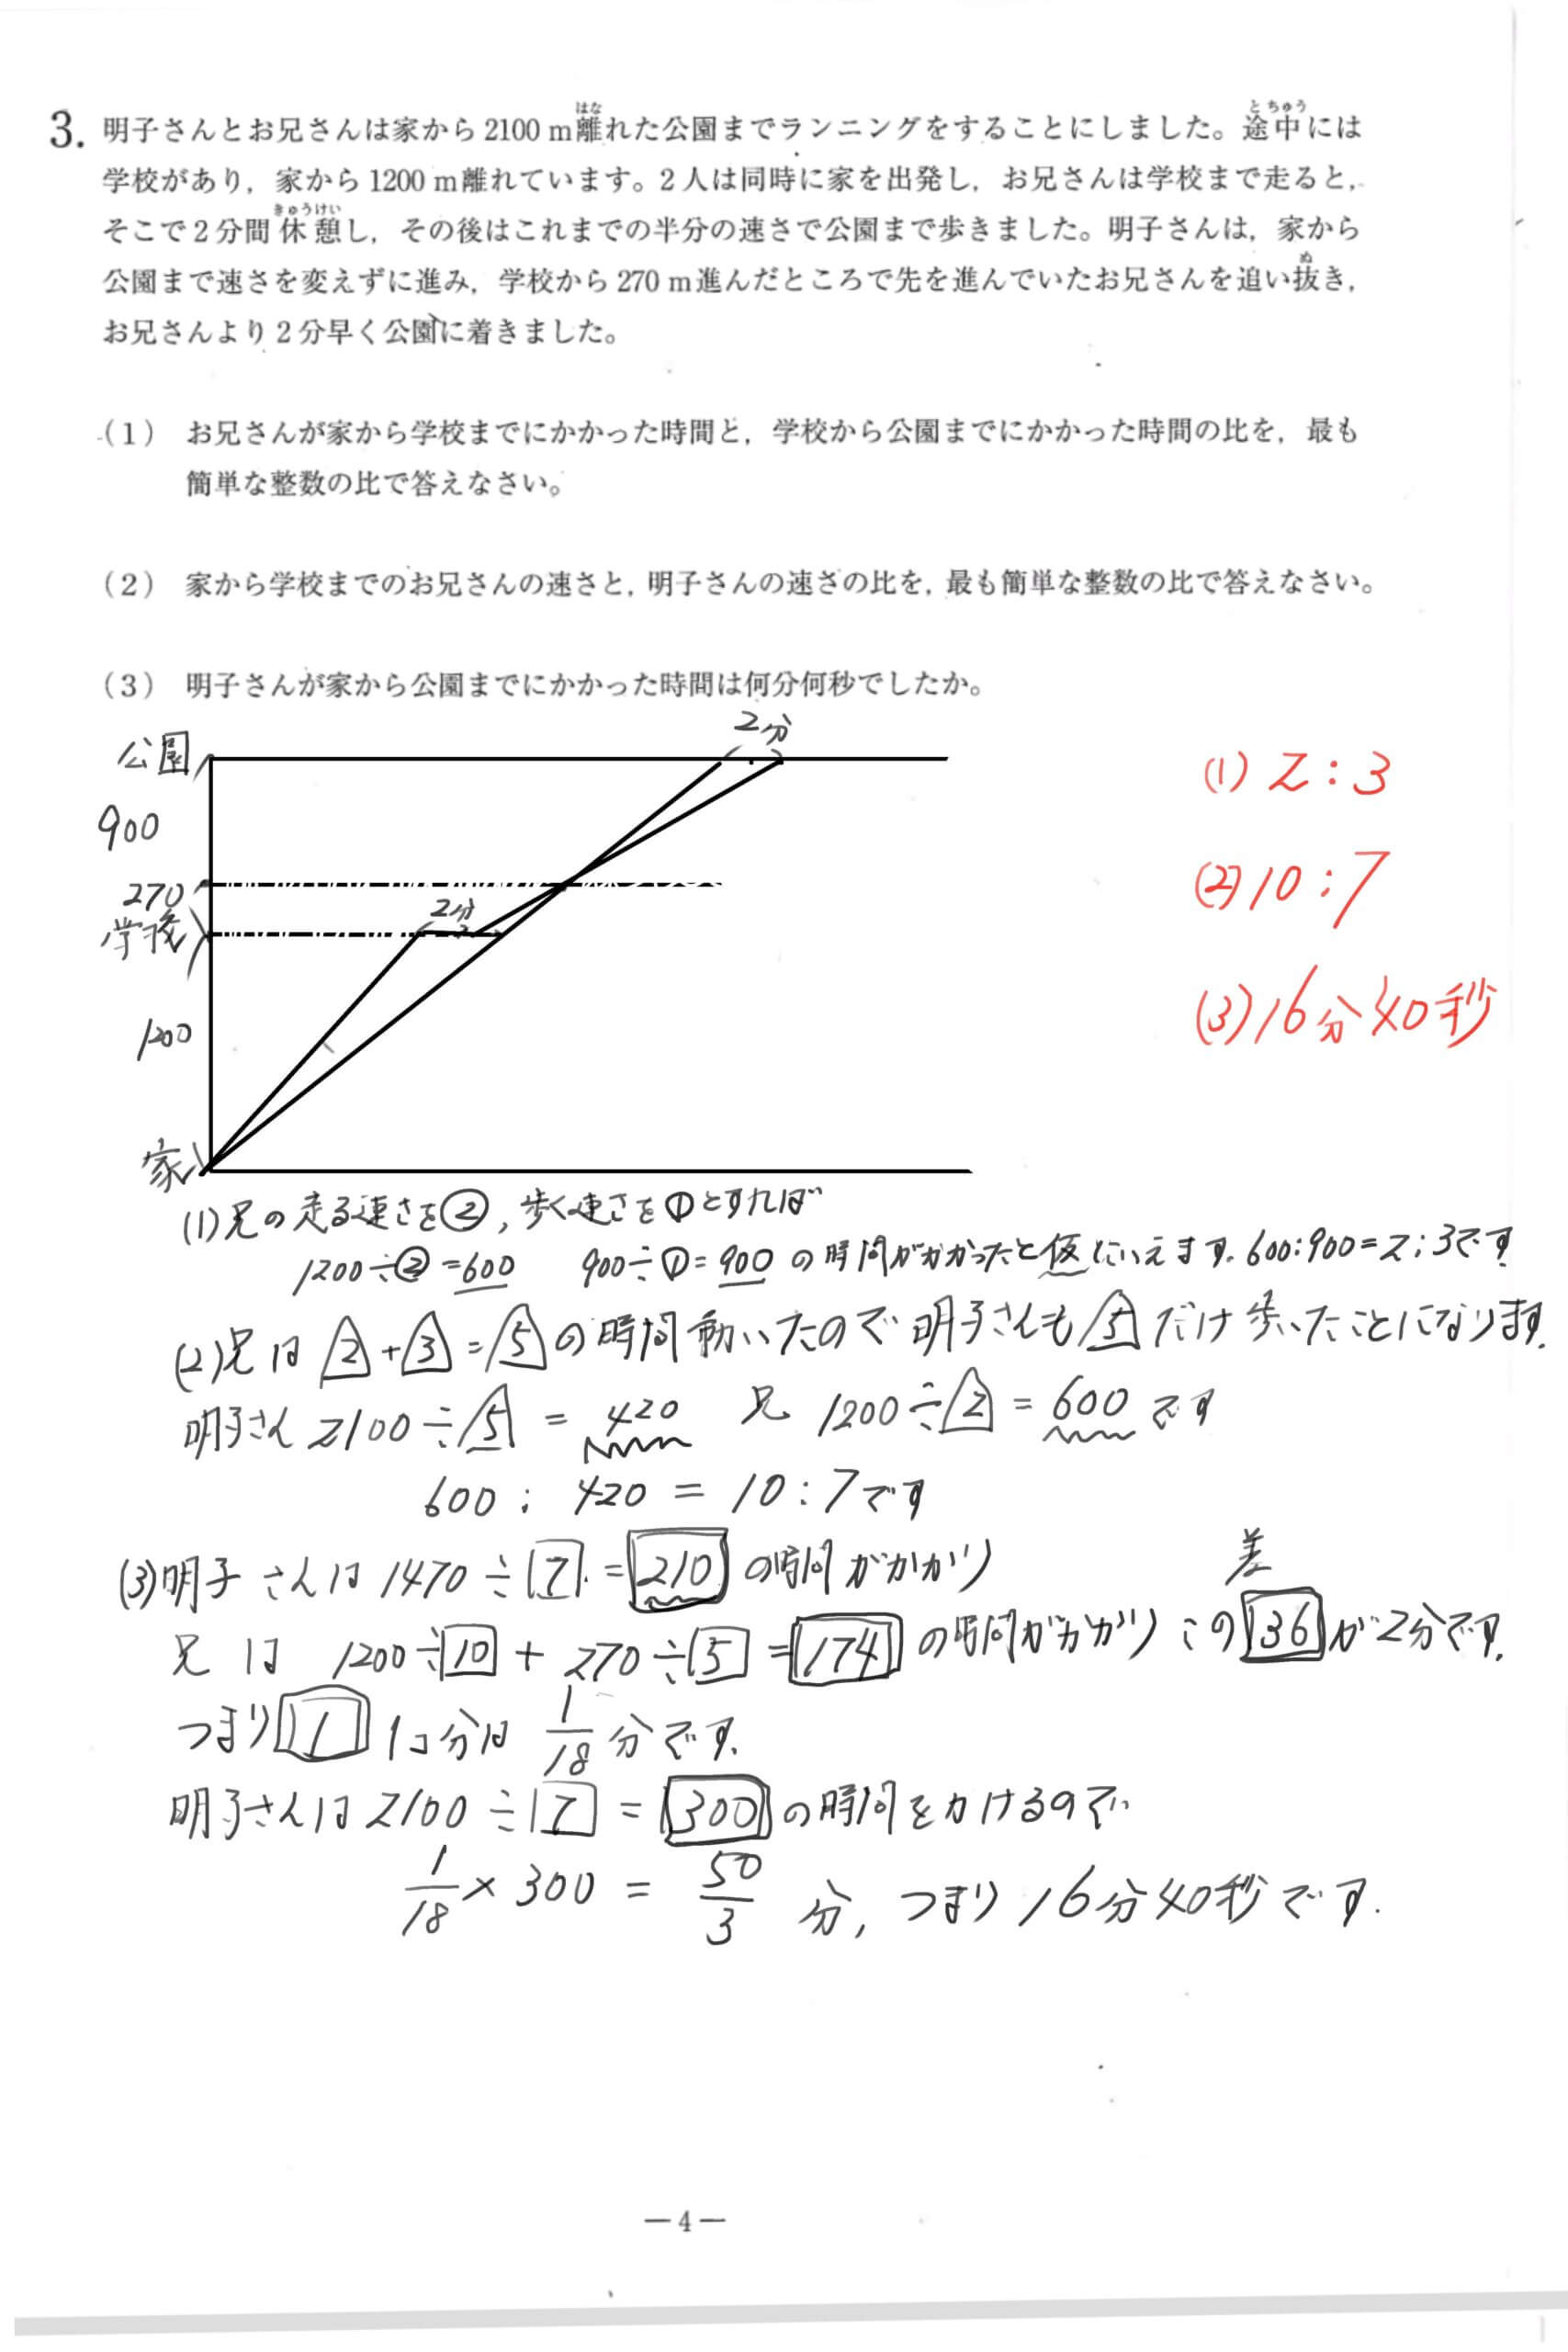 3. 明子さんとお兄さんは家から2100 m離れた公園までランニングをすることにしました。途中には
はな
とちゅう
学校があり，家から1200 m離れています。2人は同時に家を出発し，お兄さんは学校まで走ると，
そこで2分間休憩し，その後はこれまでの半分の速さで公園まで歩きました。明子さんは，家から
きゅうけい
公園まで速さを変えずに進み，学校から270 m進んだところで先を進んでいたお兄さんを追い抜き，
ぬ
お兄さんより2分早く公園に着きました。
（1） お兄さんが家から学校までにかかった時間と，学校から公園までにかかった時間の比を，最も
簡単な整数の比で答えなさい。
（2） 家から学校までのお兄さんの速さと，明子さんの速さの比を，最も簡単な整数の比で答えなさい。
（3） 明子さんが家から公園までにかかった時間は何分何秒でしたか。
2分
公園
900
270
2分
学校
1200
家
(1) 2:3
(2) 10:7
(3) 16分40秒
(1)兄の走る速さを②，歩く速さを①とすれば
1200÷②=600 900÷①=900 の時間がかかったと仮にいえます. 600:900=2:3です
(2)兄は 2+3=5の時間動いたので明子さんも5だけ歩いたことになります.
明子さん 2100÷5 = 420 兄 1200÷2 = 600 です
600 : 420 = 10:7です
(3)明子さんは 1470÷7=210の時間がかかり
差
兄は 1200÷10 + 270÷5 =174の時間がかかり この36が2分です.
つまり1 1コ分は 1/18 分です.
明子さんは 2100÷7 = 300の時間をかけるので
1/18 × 300 = 50/3 分, つまり 16分40秒です.
－4－